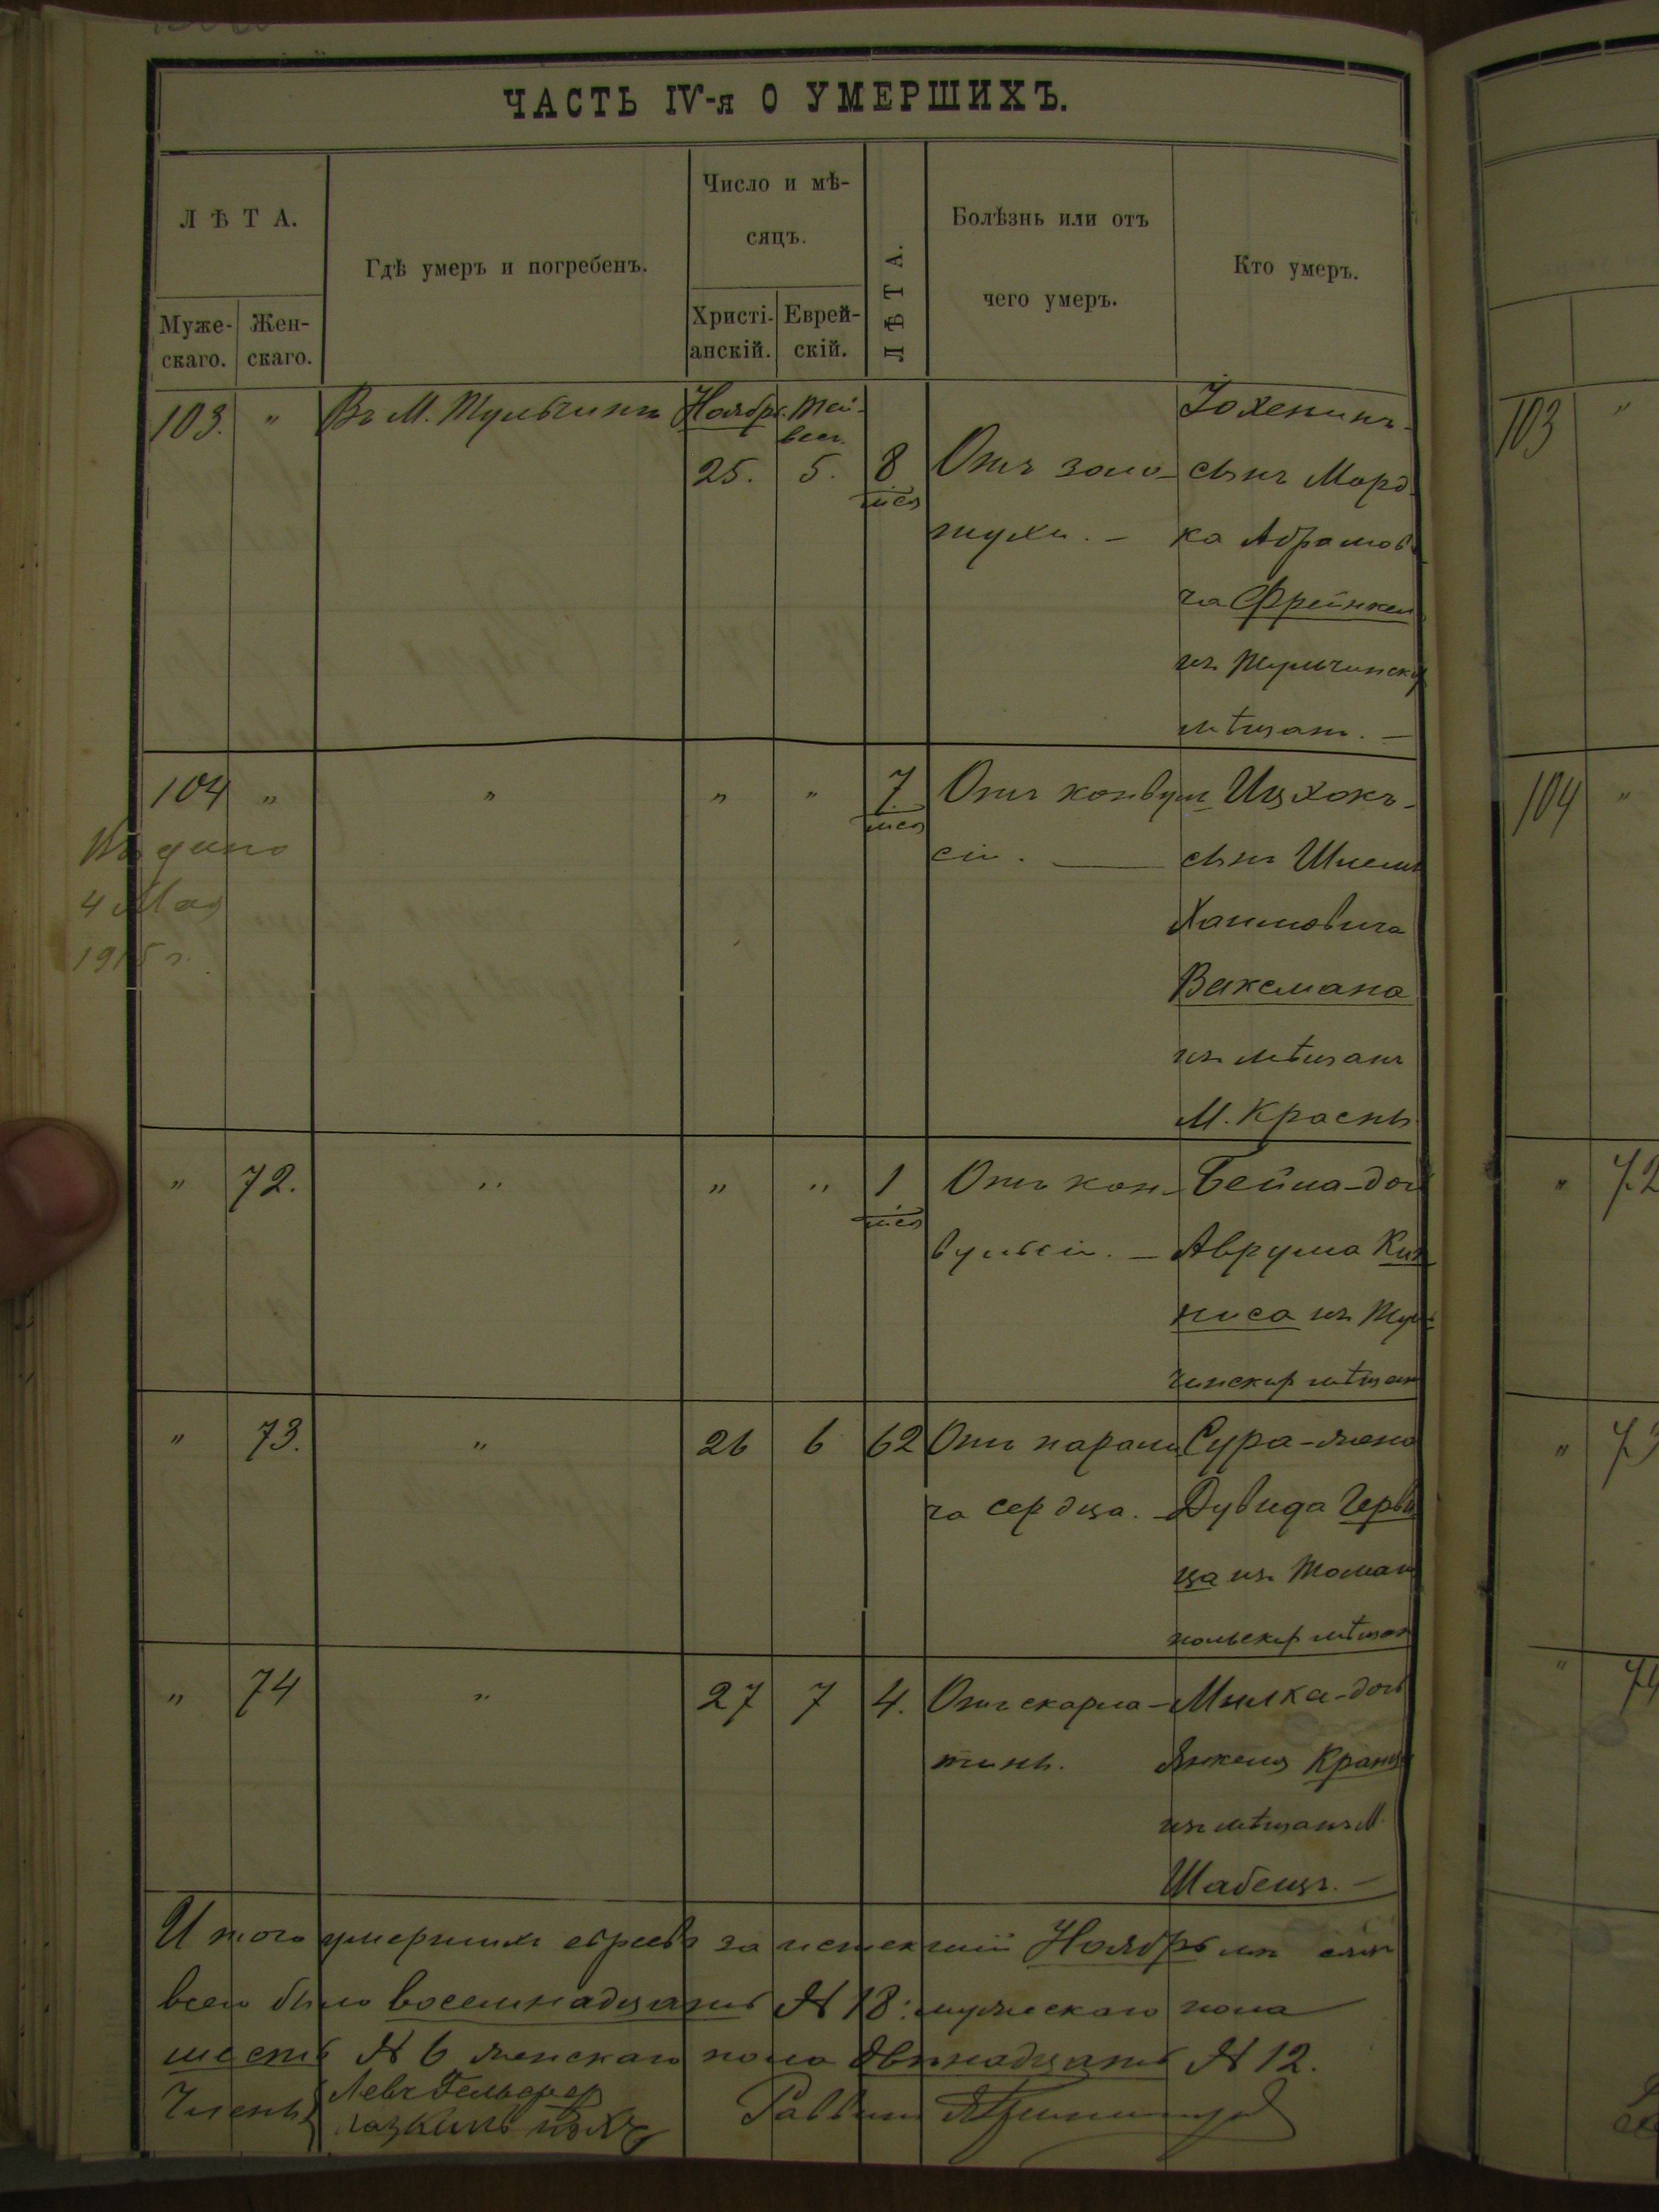 ЧАСТЬ IV-я О УМЕРШИХЪ.
ЛѢТА.
Муже-
скаго.
Жен-
скаго.
Гдѣ умеръ и погребенъ.
Число и мѣ-
сяцъ.
Христі-
анскій.
Еврей-
скій.
ЛѢТА.
Болѣзнь или отъ
чего умеръ.
Кто умеръ.
103. " Въ М. Тульчинѣ Ноябр. Тей-
вес.
25. 5. 8
мѣс
Отъ золо-
тухи. –
сынъ Морд
ка Абрамов
ча Френкел
изъ Тульчинск
мѣщанъ. –
104 " " " " 7
мѣс
Отъ конвул
сіи. —
Ицхокъ-
сынъ Шмел
Хаимовича
Ваксмана
изъ мѣщанъ
М. Красны
Выдано
4 Мая
1915 г.
" 72. " " " 1
мѣс
Отъ кон-
вульсіи. –
Бейла-доч
Аврума Кип
ниса изъ Тул
чинскихъ мѣщан
" 73. " 26 6 62
Отъ парали
ча сердца. –
Сура-жена
Дувида Герви
ца изъ Томаш
польскихъ мѣщан
" 74 " 27 7 4.
Отъ скарла-
тины.
Милка-доч
Янкеля Кранц
изъ мѣщанъ М.
Шабецъ. –
Итого умершихъ евреевъ за истекшій Ноябрь мѣ
всего было восемнадцать № 18: мужескаго пола
шесть № 6 женскаго пола двѣнадцать № 12.
Члены
Раввинъ
103 "
104 "
" 72
" 73
" 74